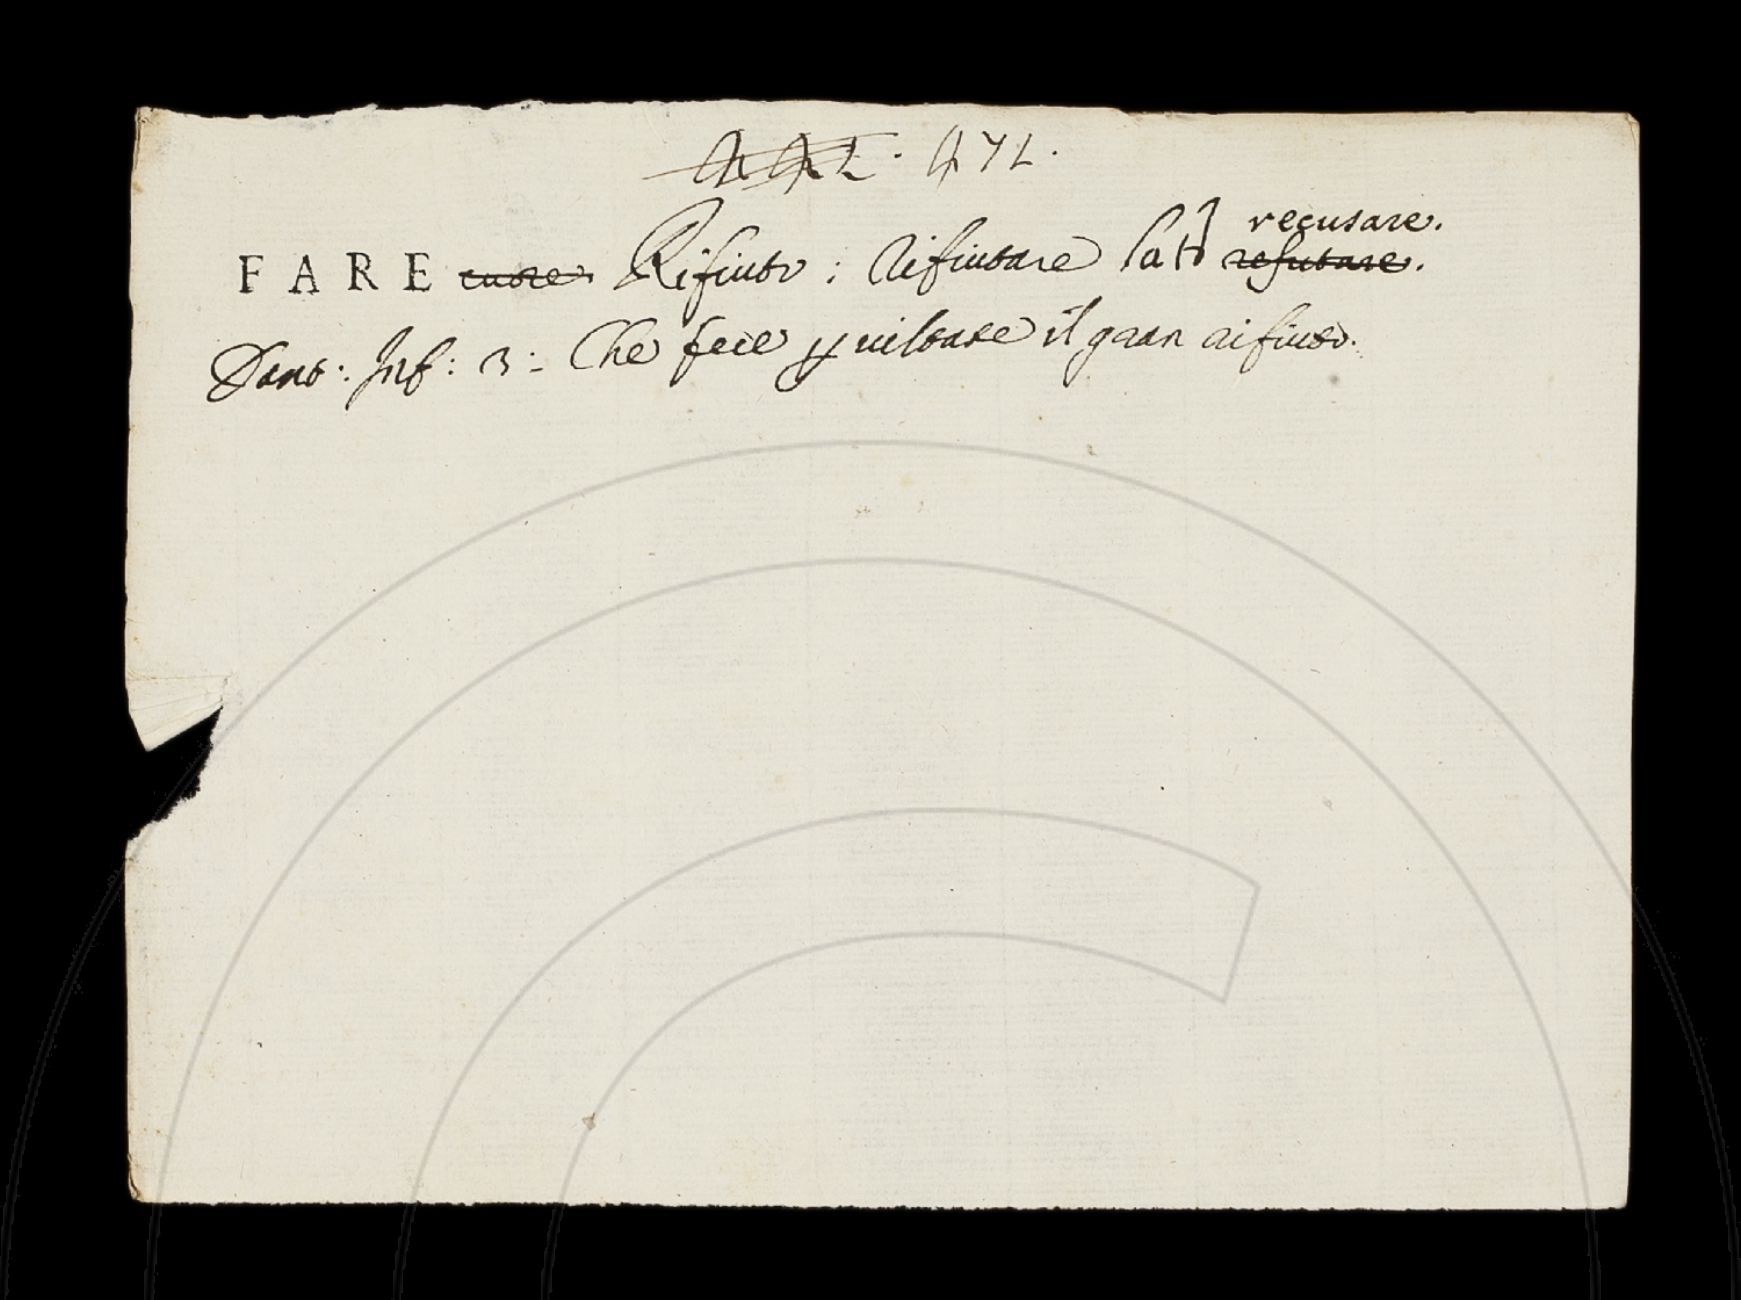 472.
FARE ~~cuore~~ Rifiuto: Rifiutare lat. recusare. ~~refutare~~.
Dant: Inf: 3: Che fece ꝑ viltate il gran rifiuto.